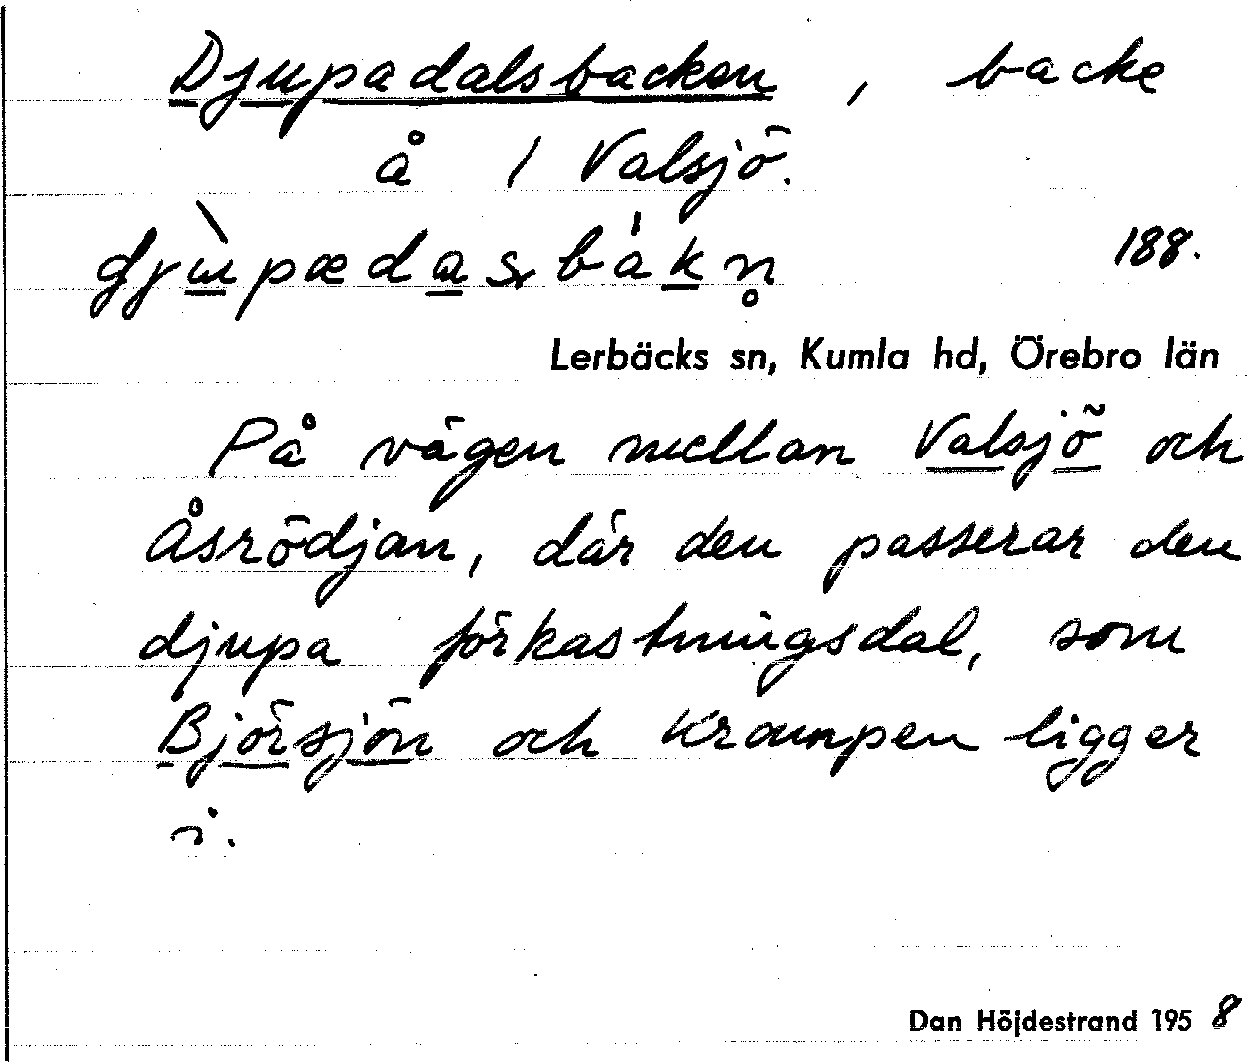 Djupadalsbacken, backe
å 1 Valsjö.
djɯ̀pædasbákn̥ 188.
Lerbäcks sn, Kumla hd, Örebro län
På vägen mellan Valsjö och
Åsrödjan, där den passerar den
djupa förkastningsdal, som
Björsjön och Krampen ligger
i.
Dan Höjdestrand 1958